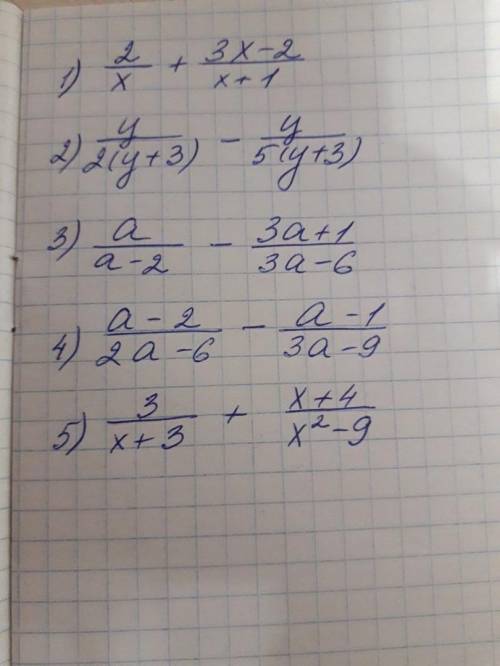 1) 2/x + (3x-2)/(x+1)
2) y/(2(y+3)) - y/(5(y+3))
3) a/(a-2) - (3a+1)/(3a-6)
4) (a-2)/(2a-6) - (a-1)/(3a-9)
5) 3/(x+3) + (x+4)/(x²-9)